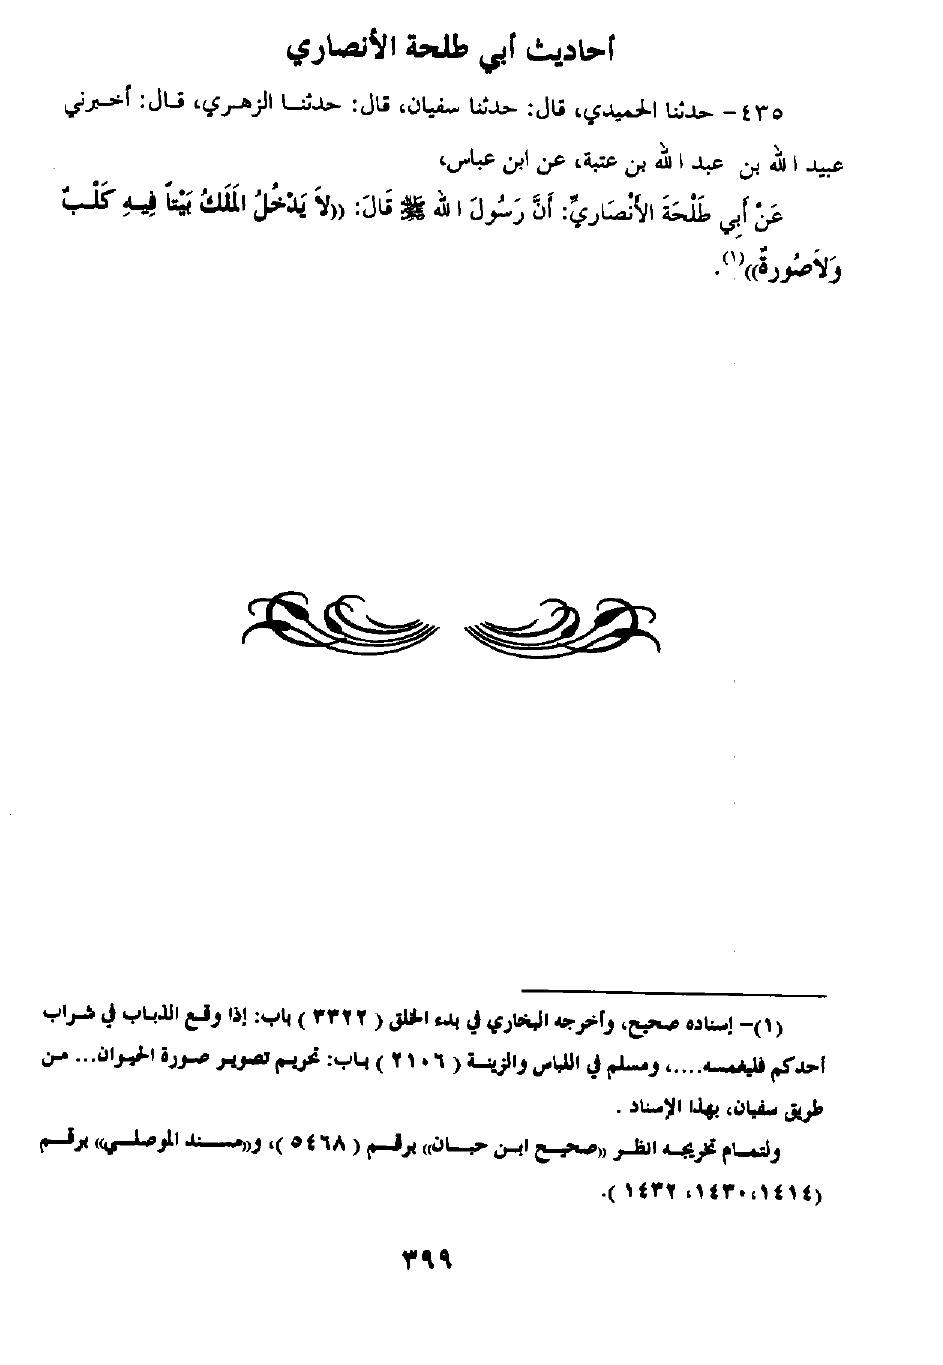 أحاديث أبي طلحة الأنصاري
٤٣٥- حدثنا الحميدي، قال: حدثنا سفيان، قال: حدثنـا الزهـري، قـال: أخـبرني
عبيد الله بن عبد الله بن عتبة، عن ابن عباس،
عَنْ أَبِي طَلْحَةَ الأَنْصَارِيِّ: أَنَّ رَسُولَ الله ﷺ قَالَ: ((لاَ يَدْخُلُ المَلَكُ بَيْتاً فِيـهِ كَلْـبٌ
وَلاَصُورةٌ))(١).
(١)- إسناده صحيح، وأخرجه البخاري في بدء الخلق ( ٣٣٢٢ ) باب: إذا وقـع الذبـاب في شـراب
أحدكم فليغمسـه....، ومسلم في اللباس والزينـة ( ٢١٠٦ ) بـاب: تحريـم تصويـر صـورة الحيـوان... مـن
طريق سفيان، بهذا الإسناد .
ولتمـام تخريجـه انظـر ((صحيـح ابـن حبـان)) برقـم ( ٥٤٦٨ )، و((مسـند الموصلـي)) برقـم
(١٤١٤،١٤٣٠، ١٤٣٢ ).
٣٩٩